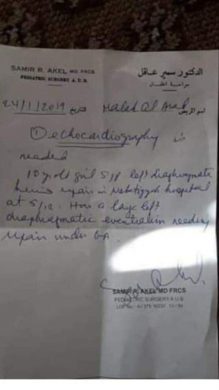 SAMIR R. AKEL MD FRCS
PEDIATRIC SURGERY A.U.B.
الدكتور سمير عاقل
جراحة اطفال
24/1/2019
اسم المريض Malek Al
echocardiography is
needed
10 y. old girl S/P left diaphragmatic
hernia repair in Nabatiyyeh hospital
at 5/12. Has a large left
diaphragmatic eventration needing
repair under
SAMIR R. AKEL MD FRCS
PEDIATRIC SURGERY A.U.B